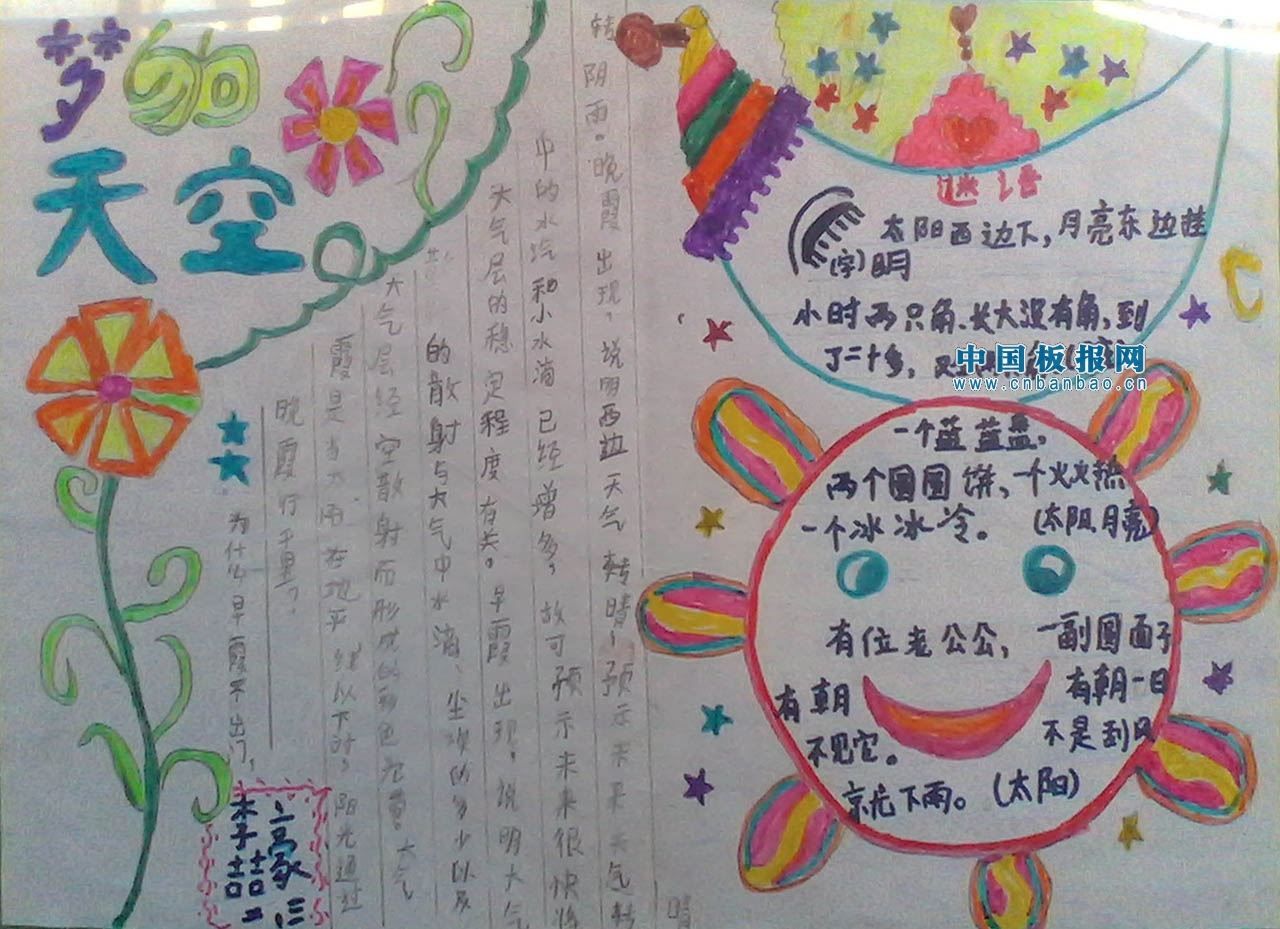 梦的
天空
为什么早霞不出门,
晚霞行千里?
霞是当太阳在地平线以下时,阳光通过
大气层经空散射而形成的彩色光幕。大气
的散射与大气中水滴、尘埃的多少以及
大气层的稳定程度有关。早霞出现,说明大气
中的水汽和小水滴已经增多,故可预示未来很快将
转阴雨。晚霞出现,说明西边天气转晴,预示未来天气转
晴
李喆
谜语
太阳西边下,月亮东边挂
(字)明
小时两只角、长大没有角,到
了二十多,又
中国板报网
www.cnbanbao.cn
一个蓝蓝盘,
两个圆圆饼,一个火火热
一个冰冰冷。(太阳、月亮)
有位老公公,一副圆面子
有朝 有朝一日
不见它。 不是刮风
就是下雨。(太阳)